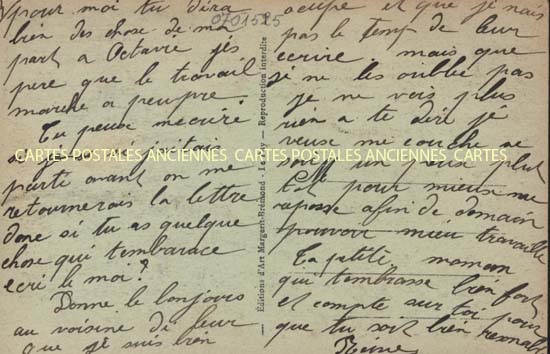 pour moi tu dira
bien des chose de ma
part a Octavre jés
pere que le travail
marche a peu pre
Tu peux mecriré
si je
partis avant on me
retournerais la lettre
donc si tu as quelque
chose qui tembarace
ecri le moi ?
Donne le bonjours
au voisine de
que je suis bien
0701525
— Éditions d'Art Margerit-Brémond — Le Puy — Reproduction Interdite
ocupé et que je nais
pas le temp de leur
ecrire mais que
je ne les oublié pas
je ne vois plus
rien a te dire je
veux me couché ce
soir un peux plut
tot pour mieux me
reposse afin de demain
pouvoir mieu travaille
Ta petite maman
qui tembrasse bien fort
et compte sur toi pour
que tu soit bien resonable
CARTES POSTALES ANCIENNES CARTES POSTALES ANCIENNES CARTES